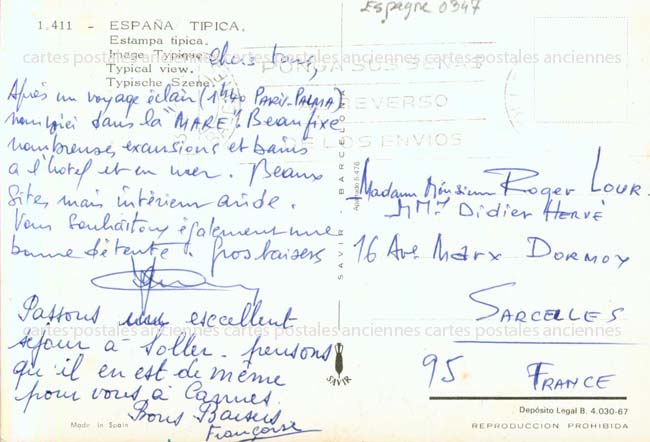 Espagne 0347
1.411 - ESPAÑA TIPICA.
Estampa tipica.
Image Typique.
Typical view.
Typische Szene.
cartes postales anciennes cartes postales anciennes cartes postales anciennes
Chers tous,
Après un voyage éclair (1h40 PARIS-PALMA)
nous voici dans la "MARE". Beau fixe
nombreuses excursions et bains
à l'hôtel et en mer. Beaux
sites mais intérieur aride.
Vous souhaitons également une
bonne détente. Gros baisers
Passons un excellent
séjour à Soller - pensons
qu'il en est de même
pour vous à Cannes.
Bons Baisers
Françoise
Made in Spain
PONGA SUS SEÑAS
REVERSO
DE LOS ENVIOS
SAVIR - BARCELONA
Apartado 5.476
Madame Monsieur Roger LOUR.
MM. Didier HERVÉ
16 Ave Marx DORMOY
SARCELLES
cartes postales anciennes cartes postales anciennes cartes postales anciennes
95 FRANCE
SAVIR
Depósito Legal B. 4.030-67
REPRODUCCION PROHIBIDA